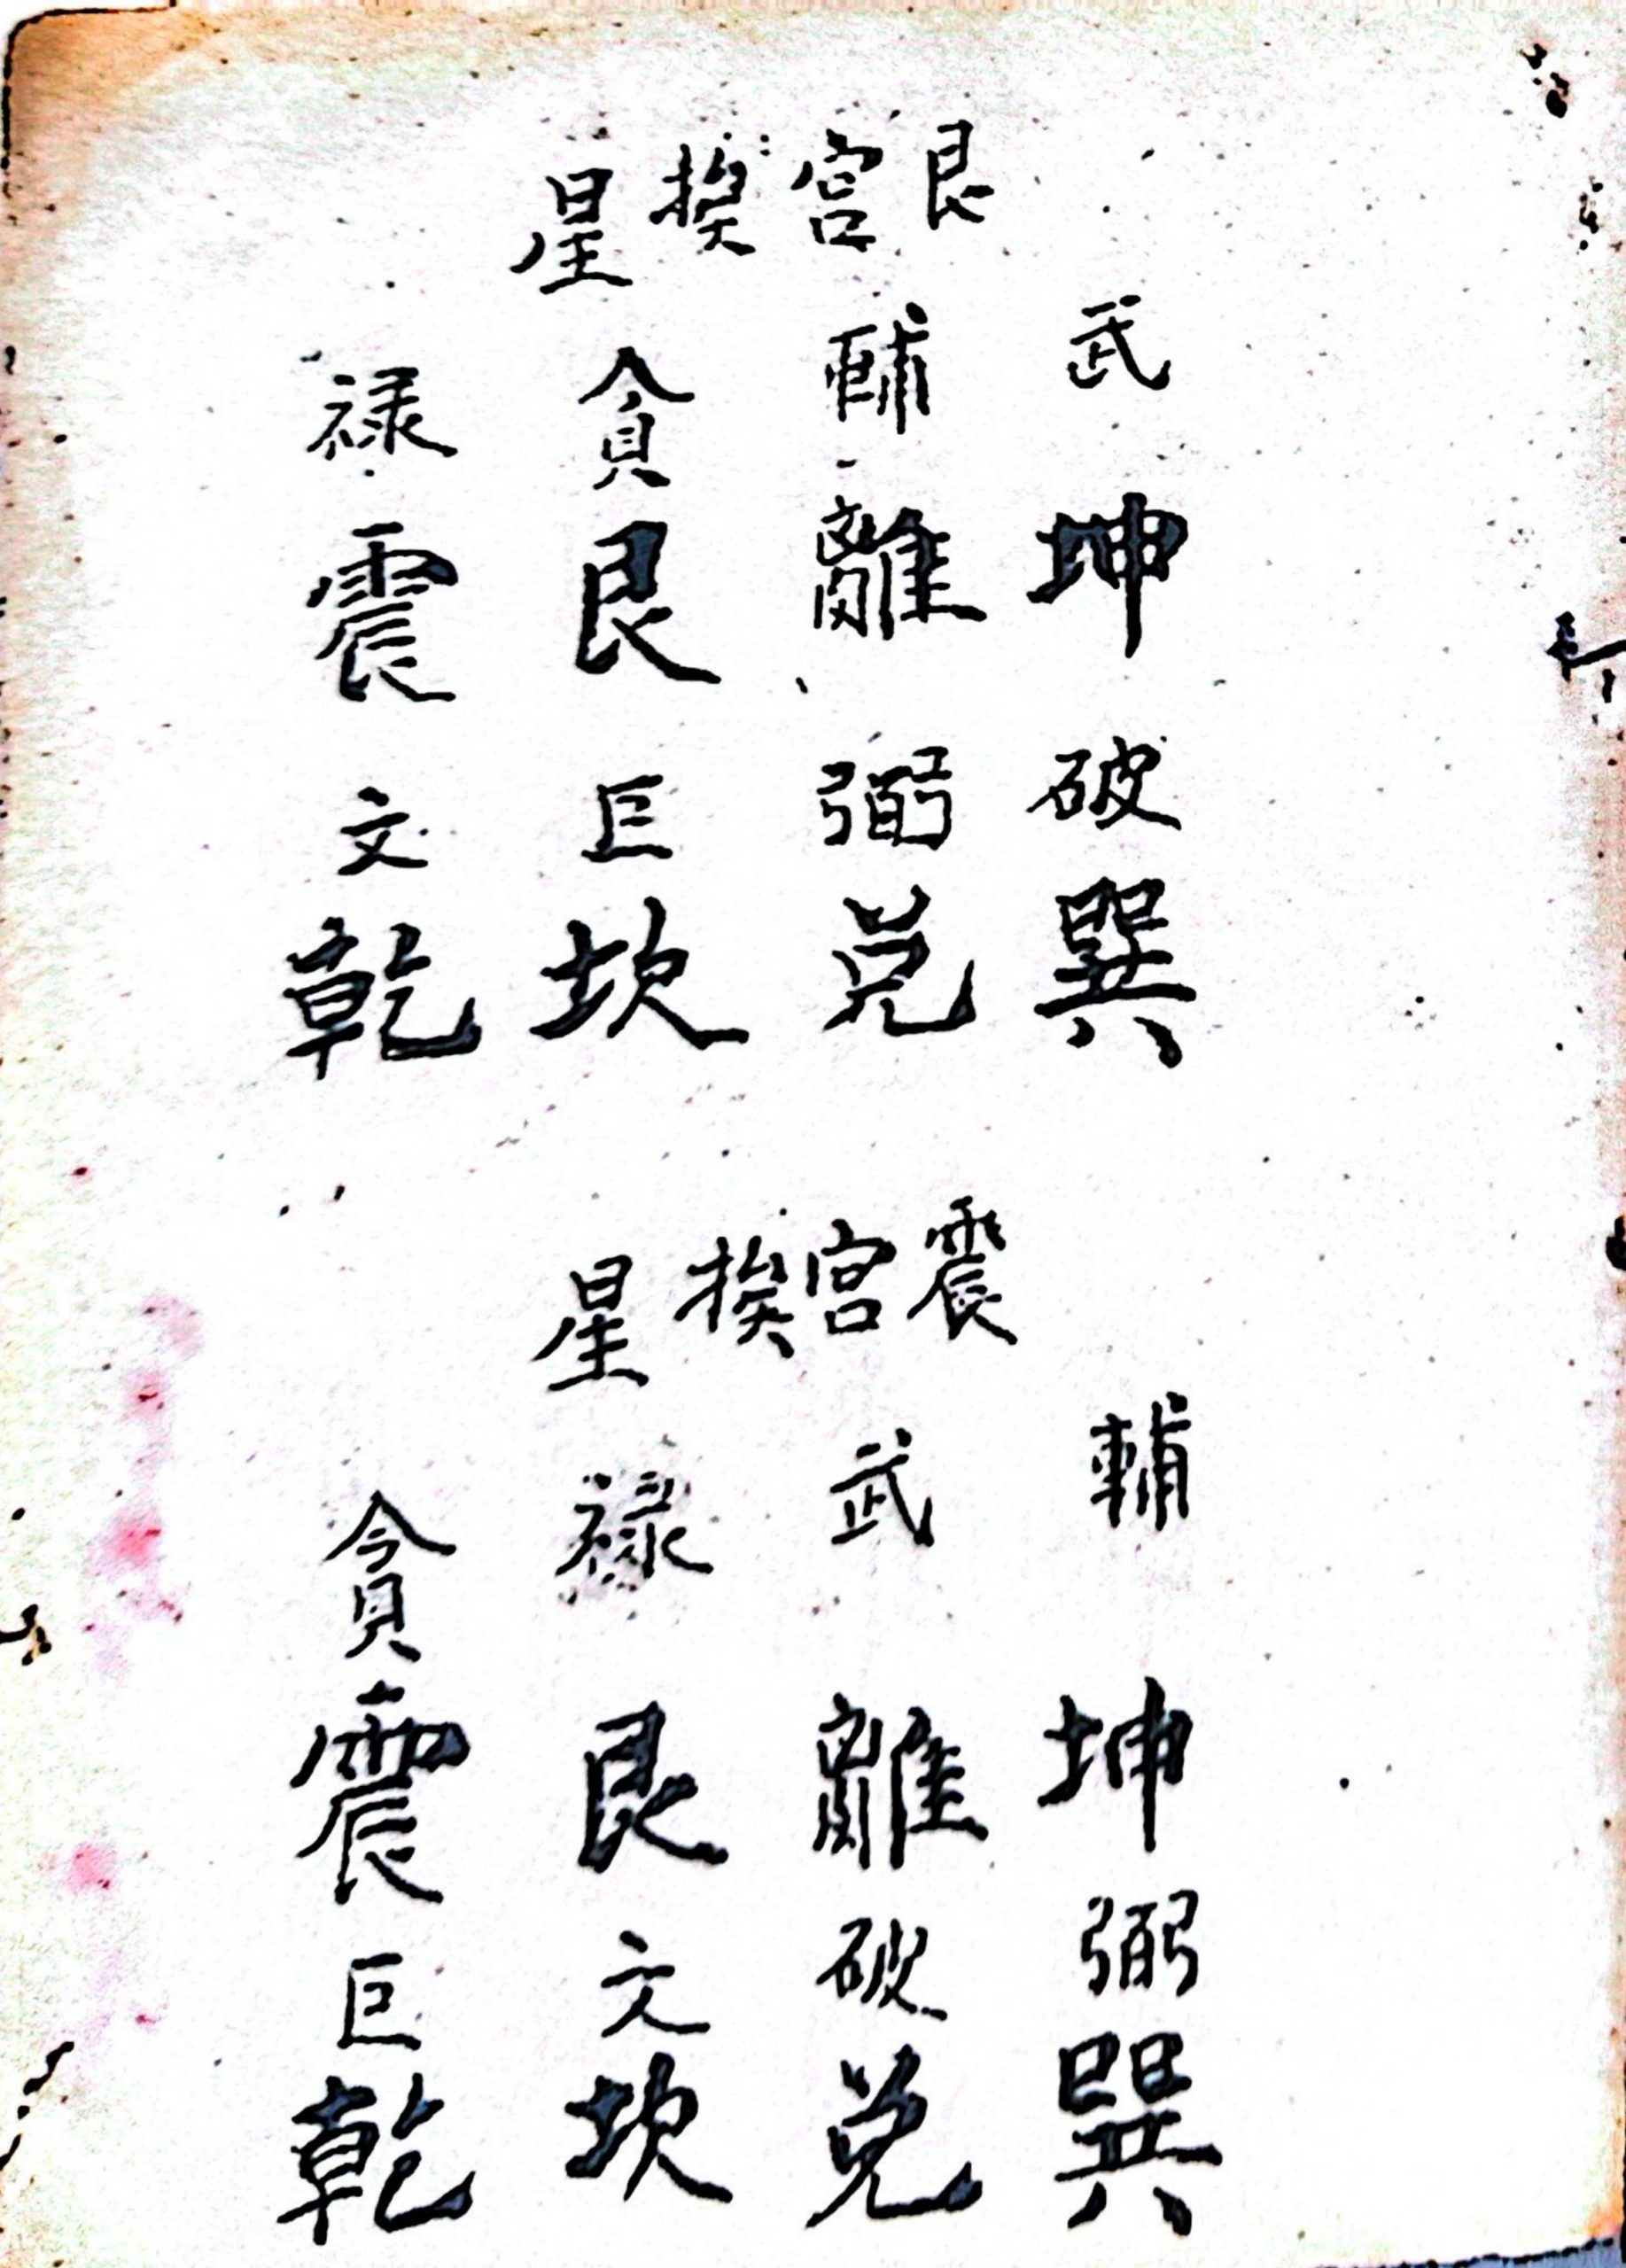 艮宮挨星
武坤破巽
輔離弼兌
貪艮巨坎
禄震文乾
震宮挨星
輔坤弼巽
武離破兌
禄艮文坎
貪震巨乾